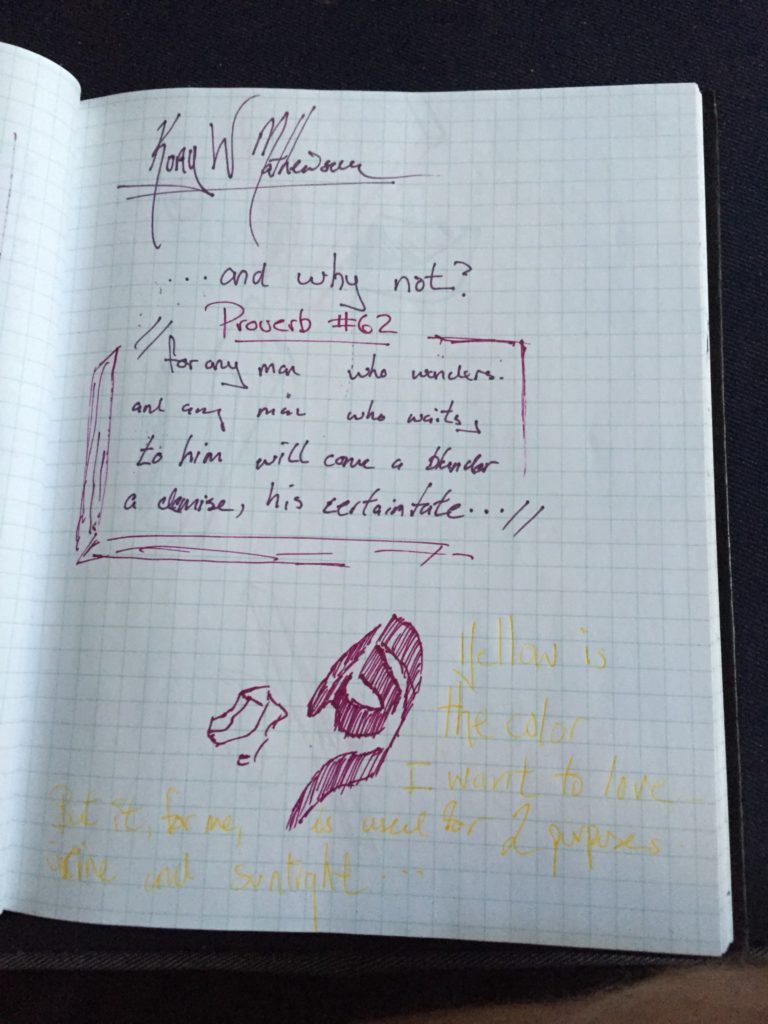 Kory W Mathewson
...and why not?
Proverb #62
// for any man who wonders.
and any man who waits,
to him will come a blunder
a demise, his certain fate...//
Yellow is
the color
I want to love
But it, for me, is used for 2 purposes.
Urine and sunlight...